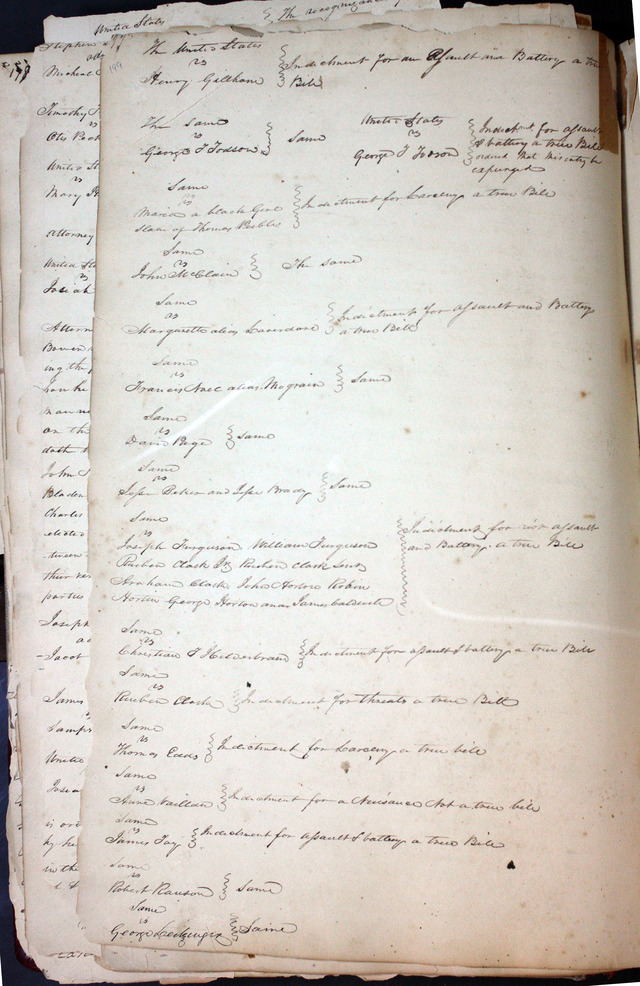 United States
The recognizance
Stephen
Micheal
Timothy
Otis
United St
Mary
Attorney
United Sta
Josiah
Attorn
Bowen
ing the
man
on the
doth
John
Bladen
Charles
elected
tween
their
parties
Joseph
Jacob
James
Samps
United
is ord
in the
199
The United States
vs
Henry Gillham
Indictment for an Assault and Battery a true
Bill
The same
vs
George T Todson
Same
United States
vs
George T Todson
Indictment for assault
& battery a true Bill
ordered that miscentry be
expunged
Same
vs
Maria a black Girl
slave of Thomas Peebles
Indictment for Larceny a true Bill
Same
vs
John McClain
The same
Same
vs
Margarett alias
Indictment for assault and Battery
a true Bill
Same
vs
Francis Noel alias Mograin
Same
Same
vs
David Page
Same
Same
vs
Jesse and Jesse Brady
Same
Same
vs
Joseph Ferguson William Ferguson
Reuben Clark Jr Reuben Clark Senr
Abraham Clark John Horton Robin
Horton George Horton and James Caldwell
Indictment for riot assault
and Battery a true Bill
Same
vs
Christian T Hilderbrand
Indictment for assault & battery a true Bill
Same
vs
Reuben Clark
Indictment for threats a true Bill
Same
vs
Thomas Eads
Indictment for Larceny a true bill
Same
vs
Vaillant
Indictment for a Nuisance Not a true bill
Same
vs
James Tay
Indictment for assault & battery a true Bill
Same
vs
Robert Ranson
Same
Same
vs
George
Same